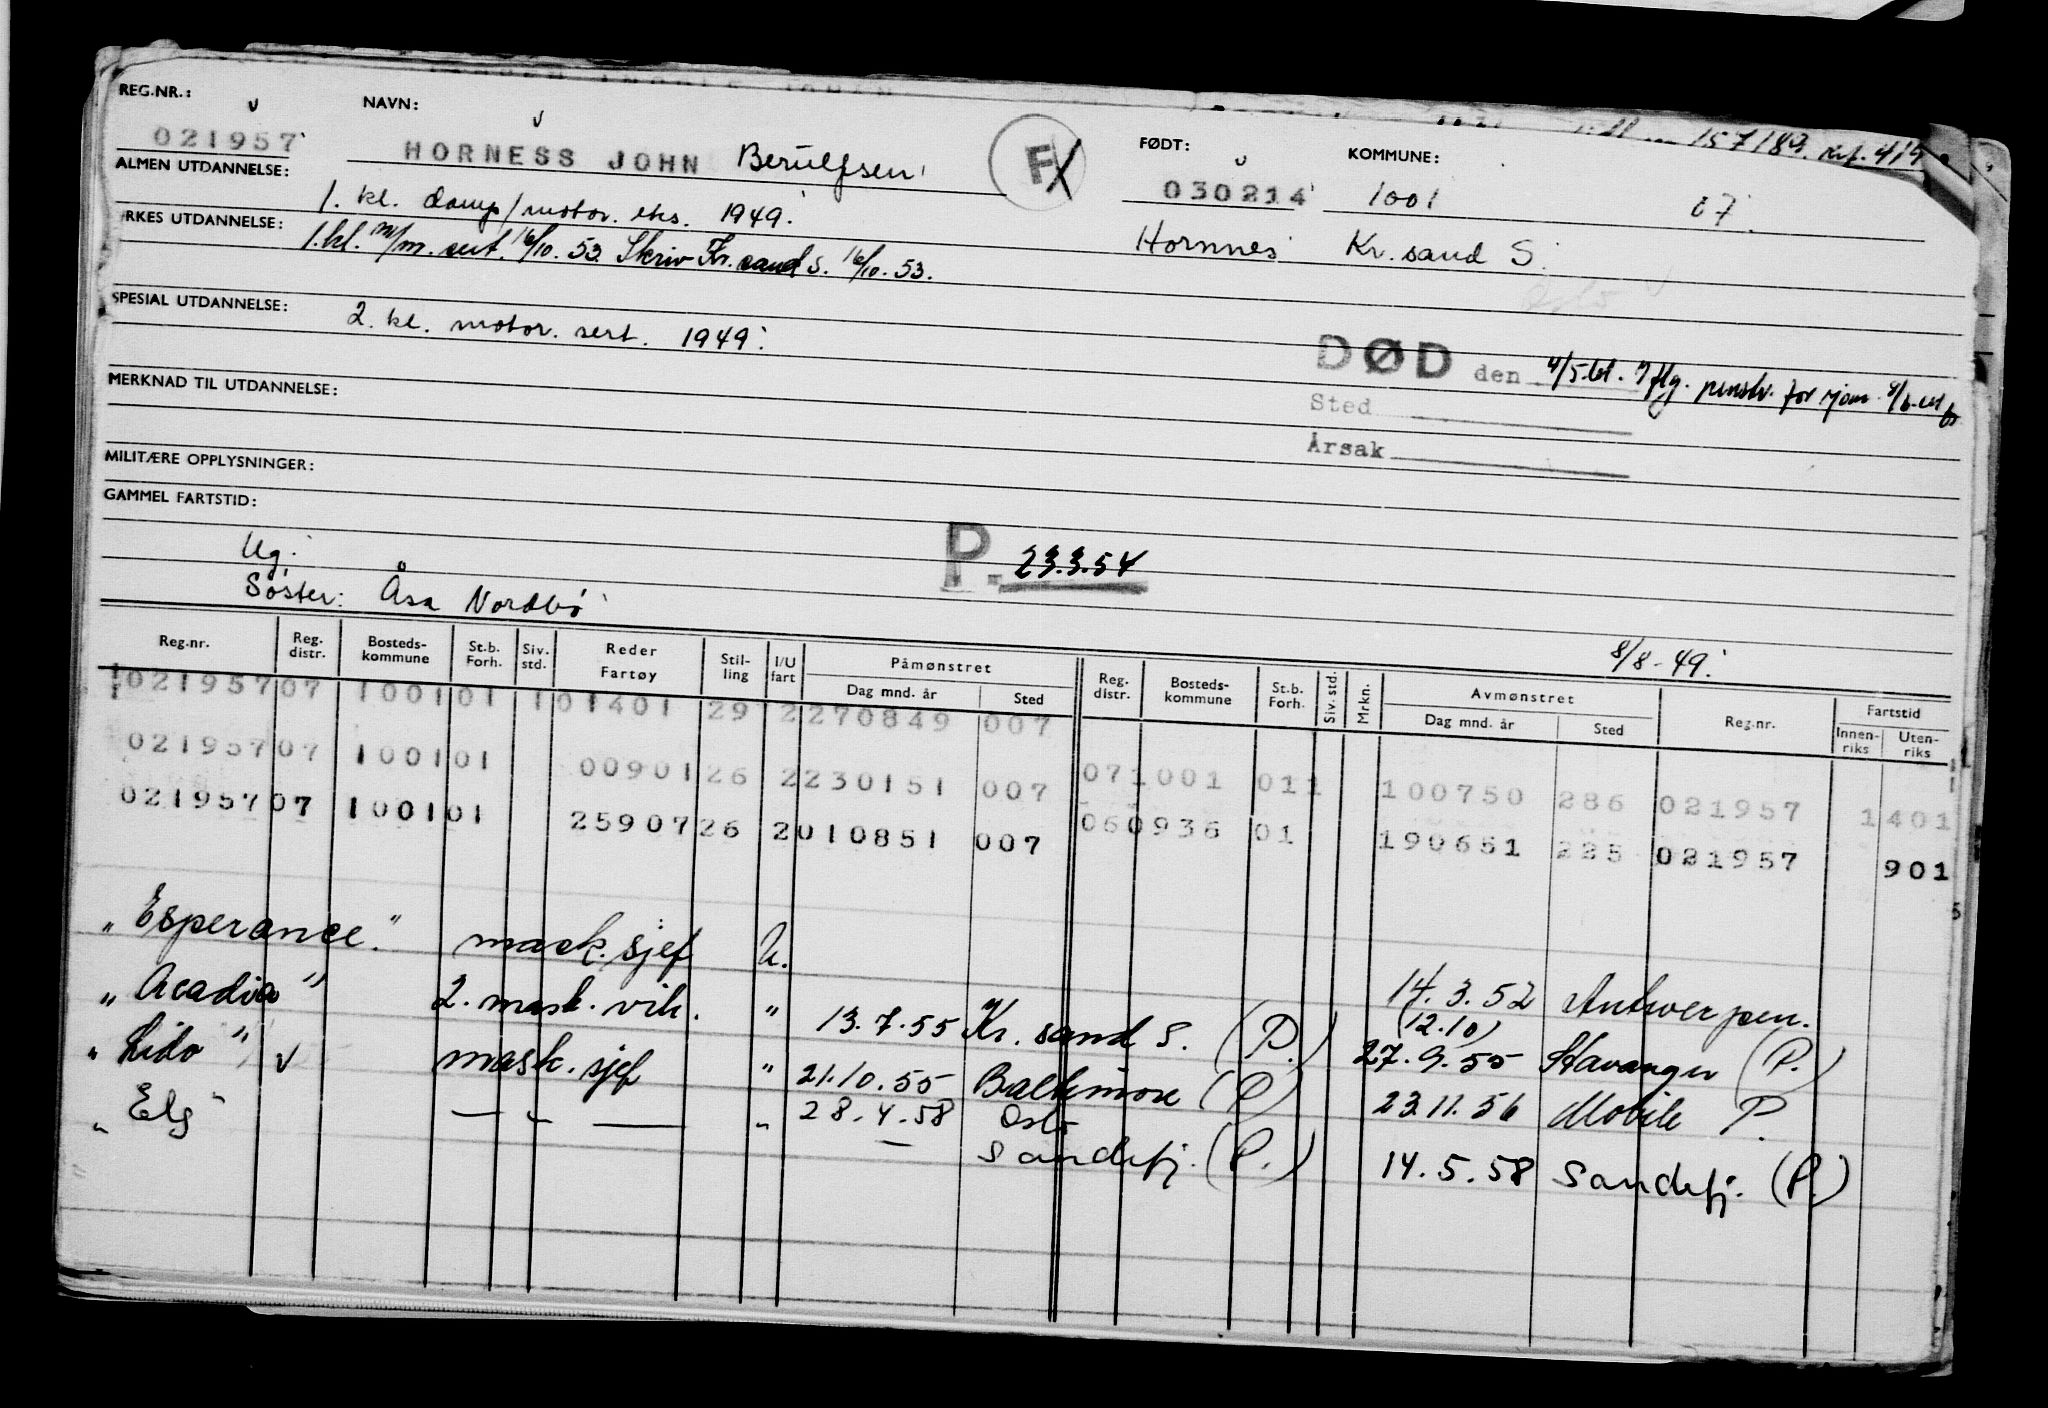 157184. Ref. 419
REG.NR.: NAVN: FØDT: KOMMUNE:
021957 HORNESS JOHN Berulfsen F 030214 1001 07.
ALMEN UTDANNELSE: 1. kl. damp/motor. eks. 1949. Hornnes Kr. sand S.
YRKES UTDANNELSE: 1.kl. m/m. sert. 16/10. 53. Skriv Kr. sand S. 16/10. 53.
Oslo
SPESIAL UTDANNELSE: 2. kl. motor. sert. 1949.
DØD den 4/5.61. iflg. penstr. for sjøm. 8/6.61
MERKNAD TIL UTDANNELSE:
Sted
Årsak
MILITÆRE OPPLYSNINGER:
GAMMEL FARTSTID:
Ug.
P. 23.3.54
Søster: Åsa Nordbø
8/8-49.
Reg.nr. Reg. distr. Bosteds-kommune St.b. Forh. Siv. std. Reder Fartøy Stil-ling I/U fart Påmønstret Dag mnd. år Sted Reg. distr. Bosteds-kommune St.b. Forh. Siv. std. Mrkn. Avmønstret Dag mnd. år Sted Reg.nr. Fartstid Innen-riks Uten-riks
021957 07 1001 01 1 01401 29 2 270849 007
021957 07 1001 01 00901 26 2 230151 007 07 1001 01 1 100750 286 021957 1 401
021957 07 1001 01 25907 26 2 010851 007 06 0936 01 190651 225 021957 901
"Esperance." mask. sjef U. 14.3.52 Antwerpen.
"Acadia" 2. mask. vik. " 13.7.55 Kr. sand S. (P.) (12.10) 27.9.55 Stavanger (P.)
"Lido" v mask. sjef " 21.10.55 Baltimore (P) 23.11.56 Mobile P.
"Elg" — " — " 28.4.58 Oslo
— Sandefj. (P.) 14.5.58 Sandefj. (P.)